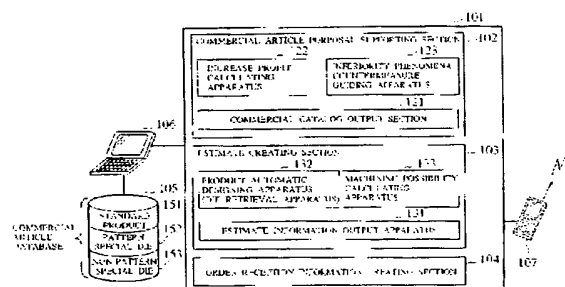 101
COMMERCIAL ARTICLE PORPOSAL SUPPORTING SECTION
102
122
123
INCREASE PROFIT
CALCULATING
APPARATUS
INFERIORITY PHENOMENA
COUNTERMEASURE
GUIDING APPARATUS
121
COMMERCIAL CATALOG OUTPUT SECTION
106
ESTIMATE CREATING SECTION
103
132
133
PRODUCT AUTOMATIC
DESIGNING APPARATUS
(DIE RETRIEVAL APPARATUS)
MACHINING POSSIBILITY
CALCULATING
APPARATUS
131
ESTIMATE INFORMATION OUTPUT APPARATUS
105
151
STANDARD
PRODUCT
152
PATTERN
SPECIAL DIE
153
NON PATTERN
SPECIAL DIE
COMMERCIAL
ARTICLE
DATABASE
104
ORDER RECEPTION INFORMATION CREATING SECTION
107